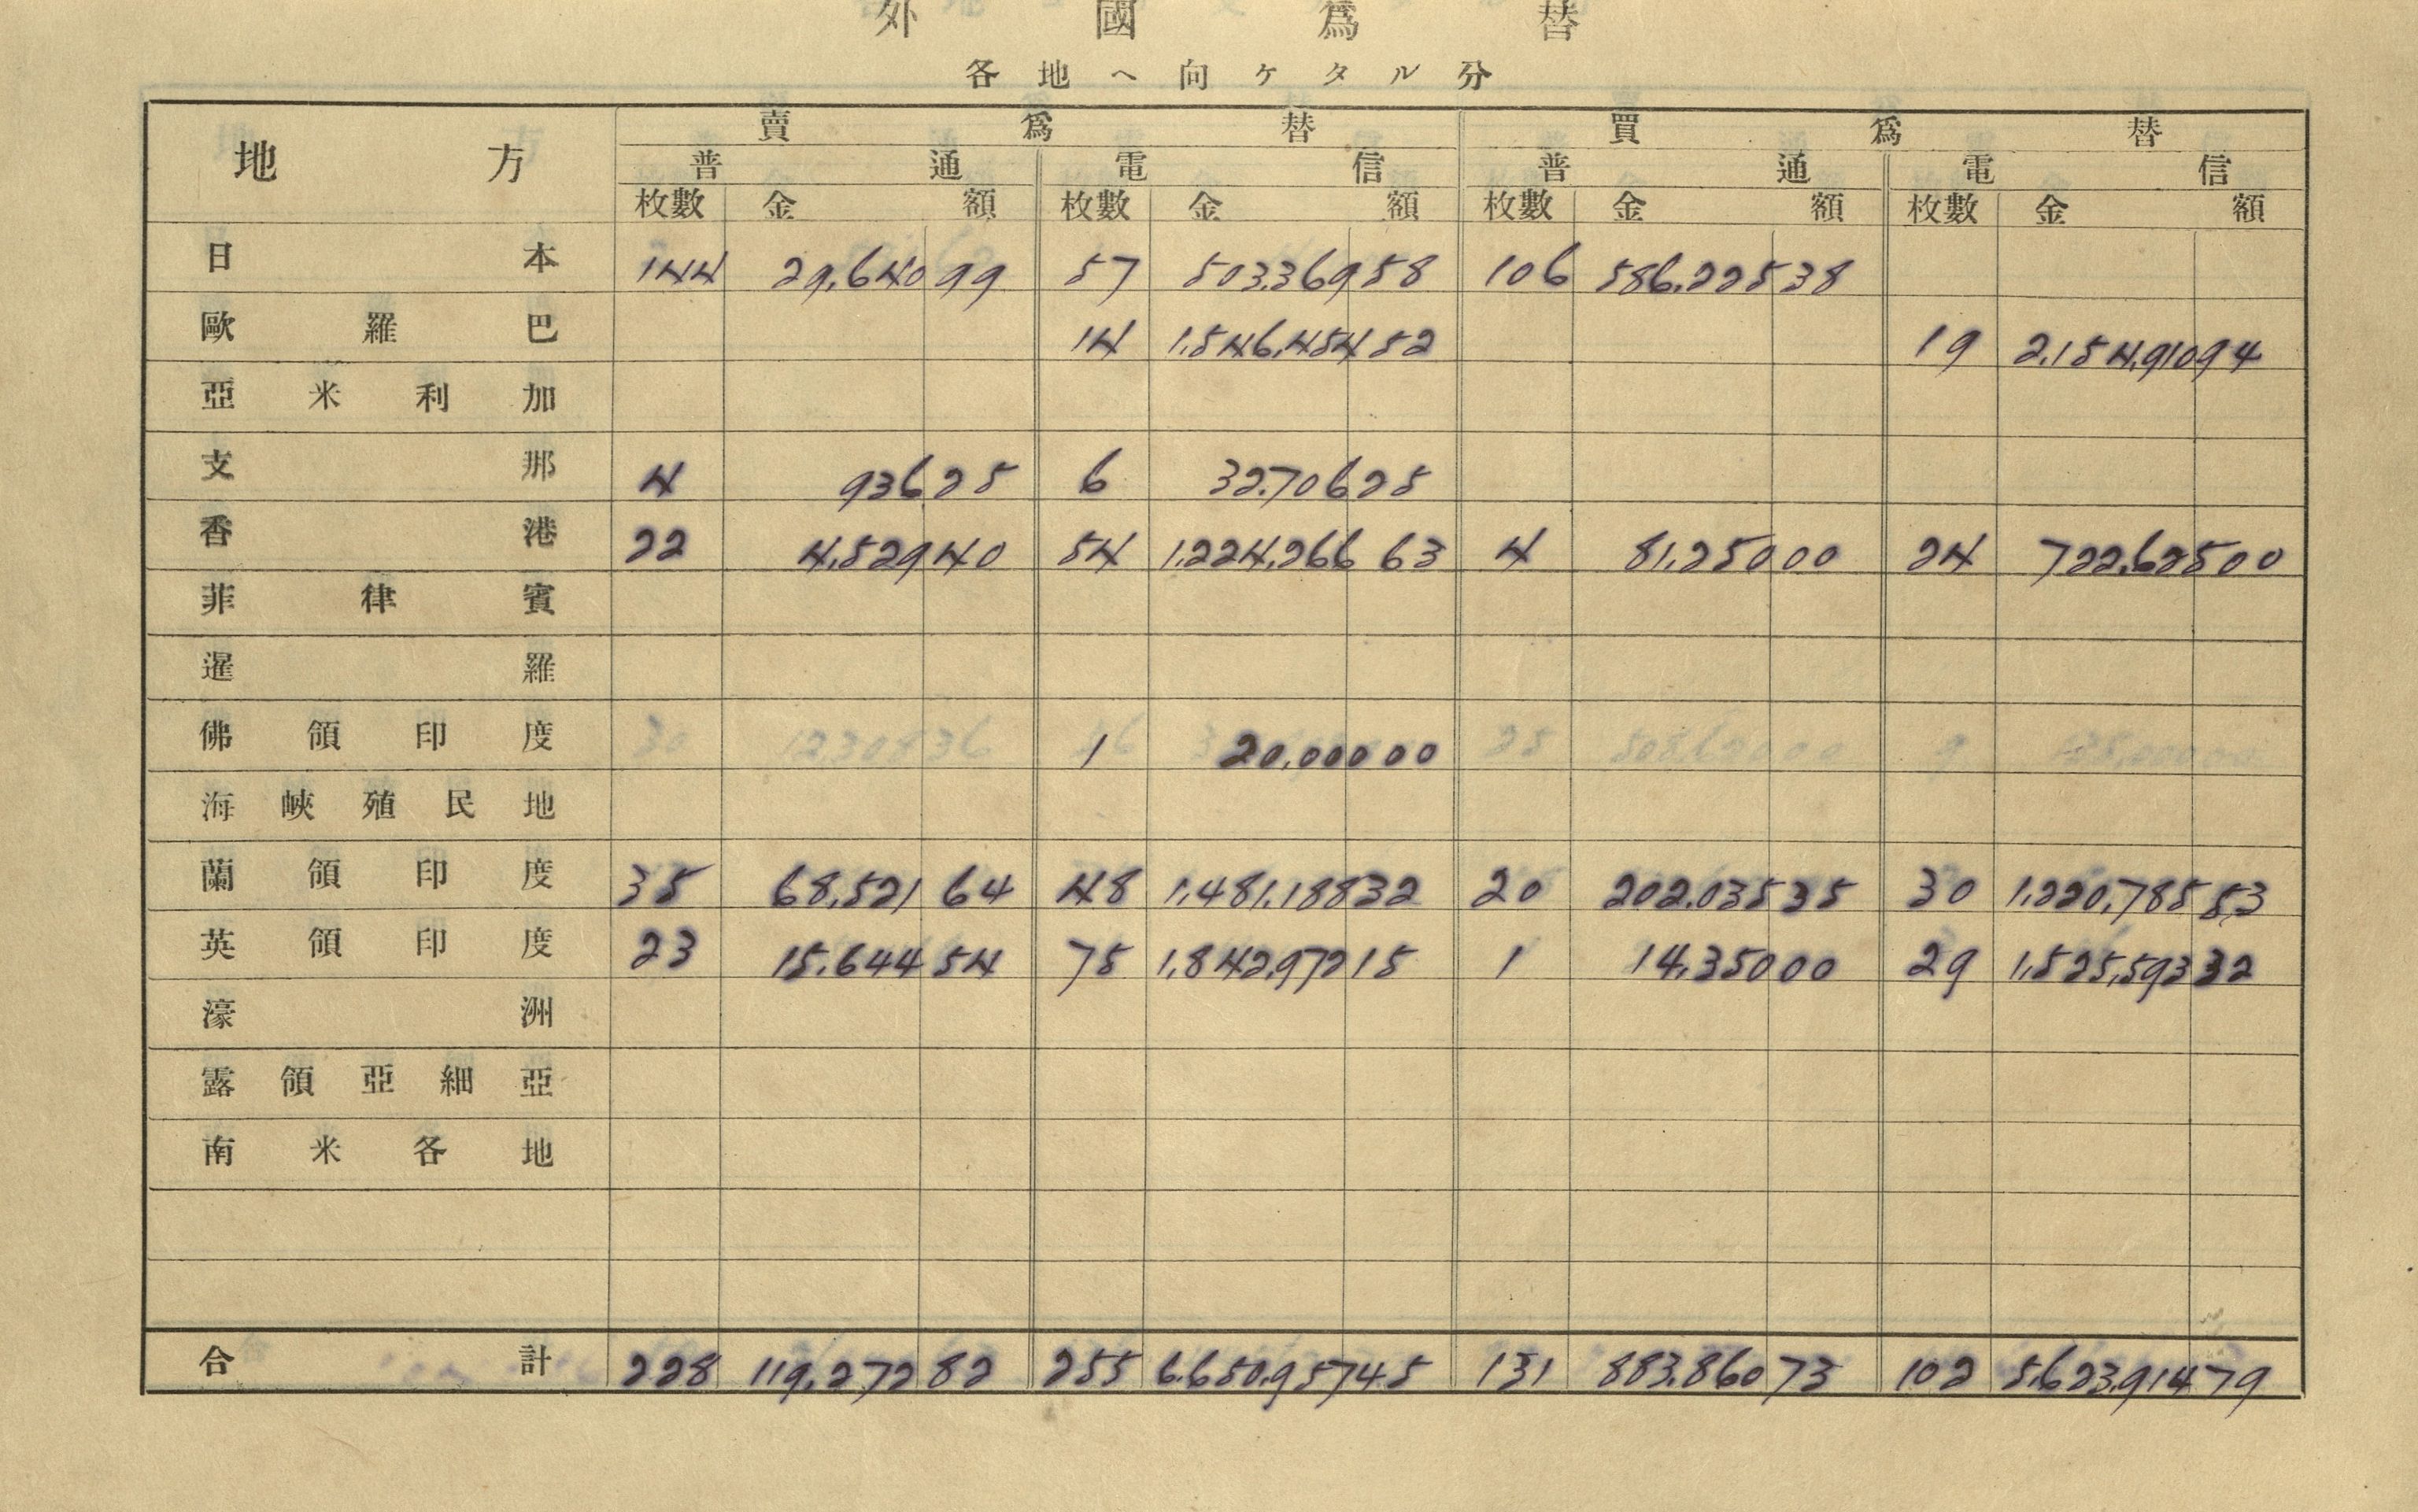 外國爲替
各地ヘ向ケタル分
地方 賣爲替 買爲替
普通 電信 普通 電信
枚數 金額 枚數 金額 枚數 金額 枚數 金額
日本 144 29,640 99 57 503,369 58 106 586,225 38
歐羅巴 14 1,546,454 52 19 2,154,910 94
亞米利加
支那 4 936 25 6 32,706 25
香港 22 4,529 40 54 1,224,266 63 4 81,250 00 24 722,625 00
菲律賓
暹羅
佛領印度 1 20,000 00
海峽殖民地
蘭領印度 35 68,521 64 48 1,481,188 32 20 202,035 35 30 1,220,785 53
英領印度 23 15,644 54 75 1,842,972 15 1 14,350 00 29 1,525,593 32
濠洲
露領亞細亞
南米各地
合計 228 119,272 82 255 6,650,957 45 131 883,860 73 102 5,623,914 79